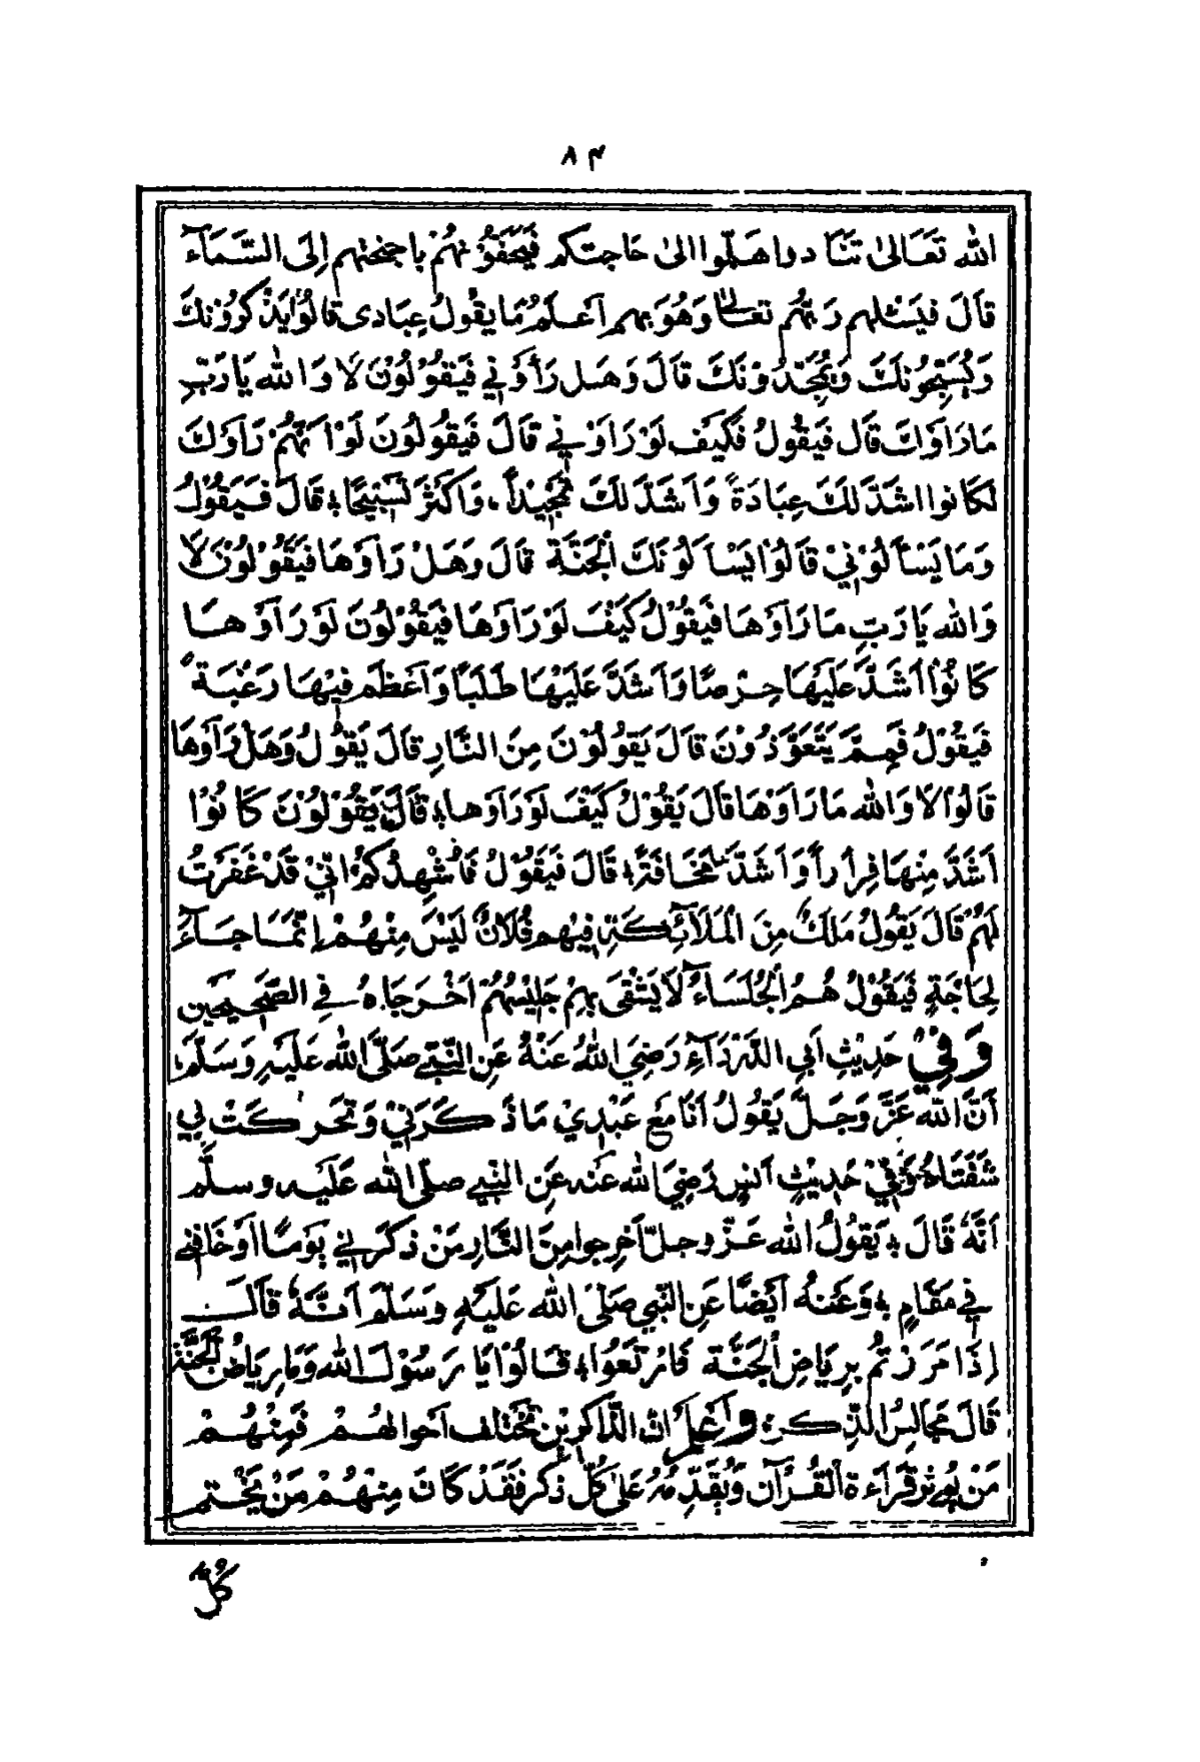 ٨٣
الله تَعَالىٰ تَنَادوا هَلمّوا الىٰ حَاجتكم فَيَحُفّوْنَهُمْ باجنحتهم إلَى السَّمَآءِ
قَالَ فيَسْئلهم رَبّهُم تعالىٰ وَهُوَ بهم اَعْلَمُ مَا يقُولُ عِبَادى قالوُا يَذْكُرُوْنكَ
وَيُسَبِّحُونَكَ وَيُمَجِّدُوْنَكَ قَالَ وَهَل رَأوْني فَيَقُوْلُوْنَ لَا وَالله يَا رَبِّ
مَا رَاَوْكَ قَال فَيَقُولُ فَكَيْف لَوْ رَاَوْني قَالَ فَيَقُولُونَ لَوْ اَنَّهُمْ رَآوْكَ
لكَانوا اشَدّ لَكَ عِبَادَةً وَاَشَدّ لَكَ تَمْجِيْداً، وَاَكْثَرَ تَسْبِيْحًا، قَالَ فَيَقُوْلُ
وَمَا يَسْاَلُوْنِيْ قَالوُا يَسْاَلُوْنَكَ الْجَنَّةَ قَالَ وَهَلْ رَاَوْهَا فَيَقُوْلُوْنَ لَا
وَالله يَا رَبِّ مَا رَاَوْهَا فَيَقُوْلُ كَيْفَ لَوْ رَاَوْهَا فَيَقُوْلُونَ لَوْ رَاَوْهَا
كَانُوْا اَشَدَّ عَلَيْهَا حِرْصًا وَاَشَدَّ عَلَيْهَا طَلَبًا وَاَعْظَمَ فِيْهَا رَغْبَةً
فَيَقُوْلُ فَمِمَّ يَتَعَوَّذُوْنَ قَالَ يَقُوْلُوْنَ مِنَ النَّارِ قَالَ يَقُوْلُ وَهَلْ رَآوْهَا
قَالُوْا لَا وَالله مَا رَاَوْهَا قَالَ يَقُوْلُ كَيْفَ لَوْ رَاَوْهَا، قَالَ يَقُوْلُوْنَ كَانُوْا
اَشَدَّ مِنْهَا فِرارًا وَاَشَدَّ مَخَافَةً، قَالَ فَيَقُوْلُ فَاُشْهِدُكُمْ اِنّيْ قَدْ غَفَرْتُ
لَهُمْ قَالَ يَقُوْلُ مَلَكٌ مِنَ الْمَلَآئِكَةِ فِيْهِم فُلَانٌ لَيْسَ مِنْهُمْ إِنَّمَا جَآءَ
لِحَاجَةٍ فَيَقُوْلُ هُمُ الْجُلَسَاءُ لَا يَشْقَى بِهِمْ جَلِيْسُهُمْ اَخْرَجَاهُ فِي الصَّحِيْحَيْن
وَفِيْ حَدِيْثِ اَبِي الدَّرْدَآءِ رَضِيَ اللهُ عَنْهُ عَنِ النَّبِيّ صَلَّى الله عَلَيْهِ وَسَلَّمَ،
اَنَّ الله عَزَّ وَجَلَّ يَقُوْلُ اَنَا مَعَ عَبْدِيْ مَا ذَكَرَنِيْ وَتَحَرّكَتْ بِي
شَفَتَاهُ وَفِيْ حَدِيْثِ اَنَسٍ رَضِيَ الله عَنْه عَنِ النَّبِيّ صلّى الله عَلَيْه وسلَّم
اَنَّهُ قَالَ، يَقُوْلُ الله عَزّ وجلّ اَخْرِجوا مِنَ النَّارِ مَنْ ذَكَرَنِي يَوْمًا اَوْ خَافَنِي
فِيْ مَقَامٍ، وَعَنْهُ اَيْضًا عَنِ النَّبِي صَلَّى الله عَلَيْهِ وَسَلّمَ اَنَّهُ قَالَ
إذَا مَرَرْتُمْ بِرِيَاضِ الْجَنَّةِ فَارْتَعُوْا، قَالُوْا يَا رَسُوْلَ الله وَمَا رِيَاضُ الْجَنَّةِ
قَالَ مَجَالِسُ الذِّكْرِ، وَاعْلَمْ انّ الذّاكِرِيْن تَخْتَلِف اَحوالهُمْ فَمِنْهُمْ
مَنْ يُوْثِرُ قَرَاءَةَ الْقُرْآنِ وَيُقَدِّمُهُ عَلىٰ كُلِّ ذِكْرٍ فَقَدْ كَانَ مِنْهُمْ مَنْ يَخْتم
كُلّ